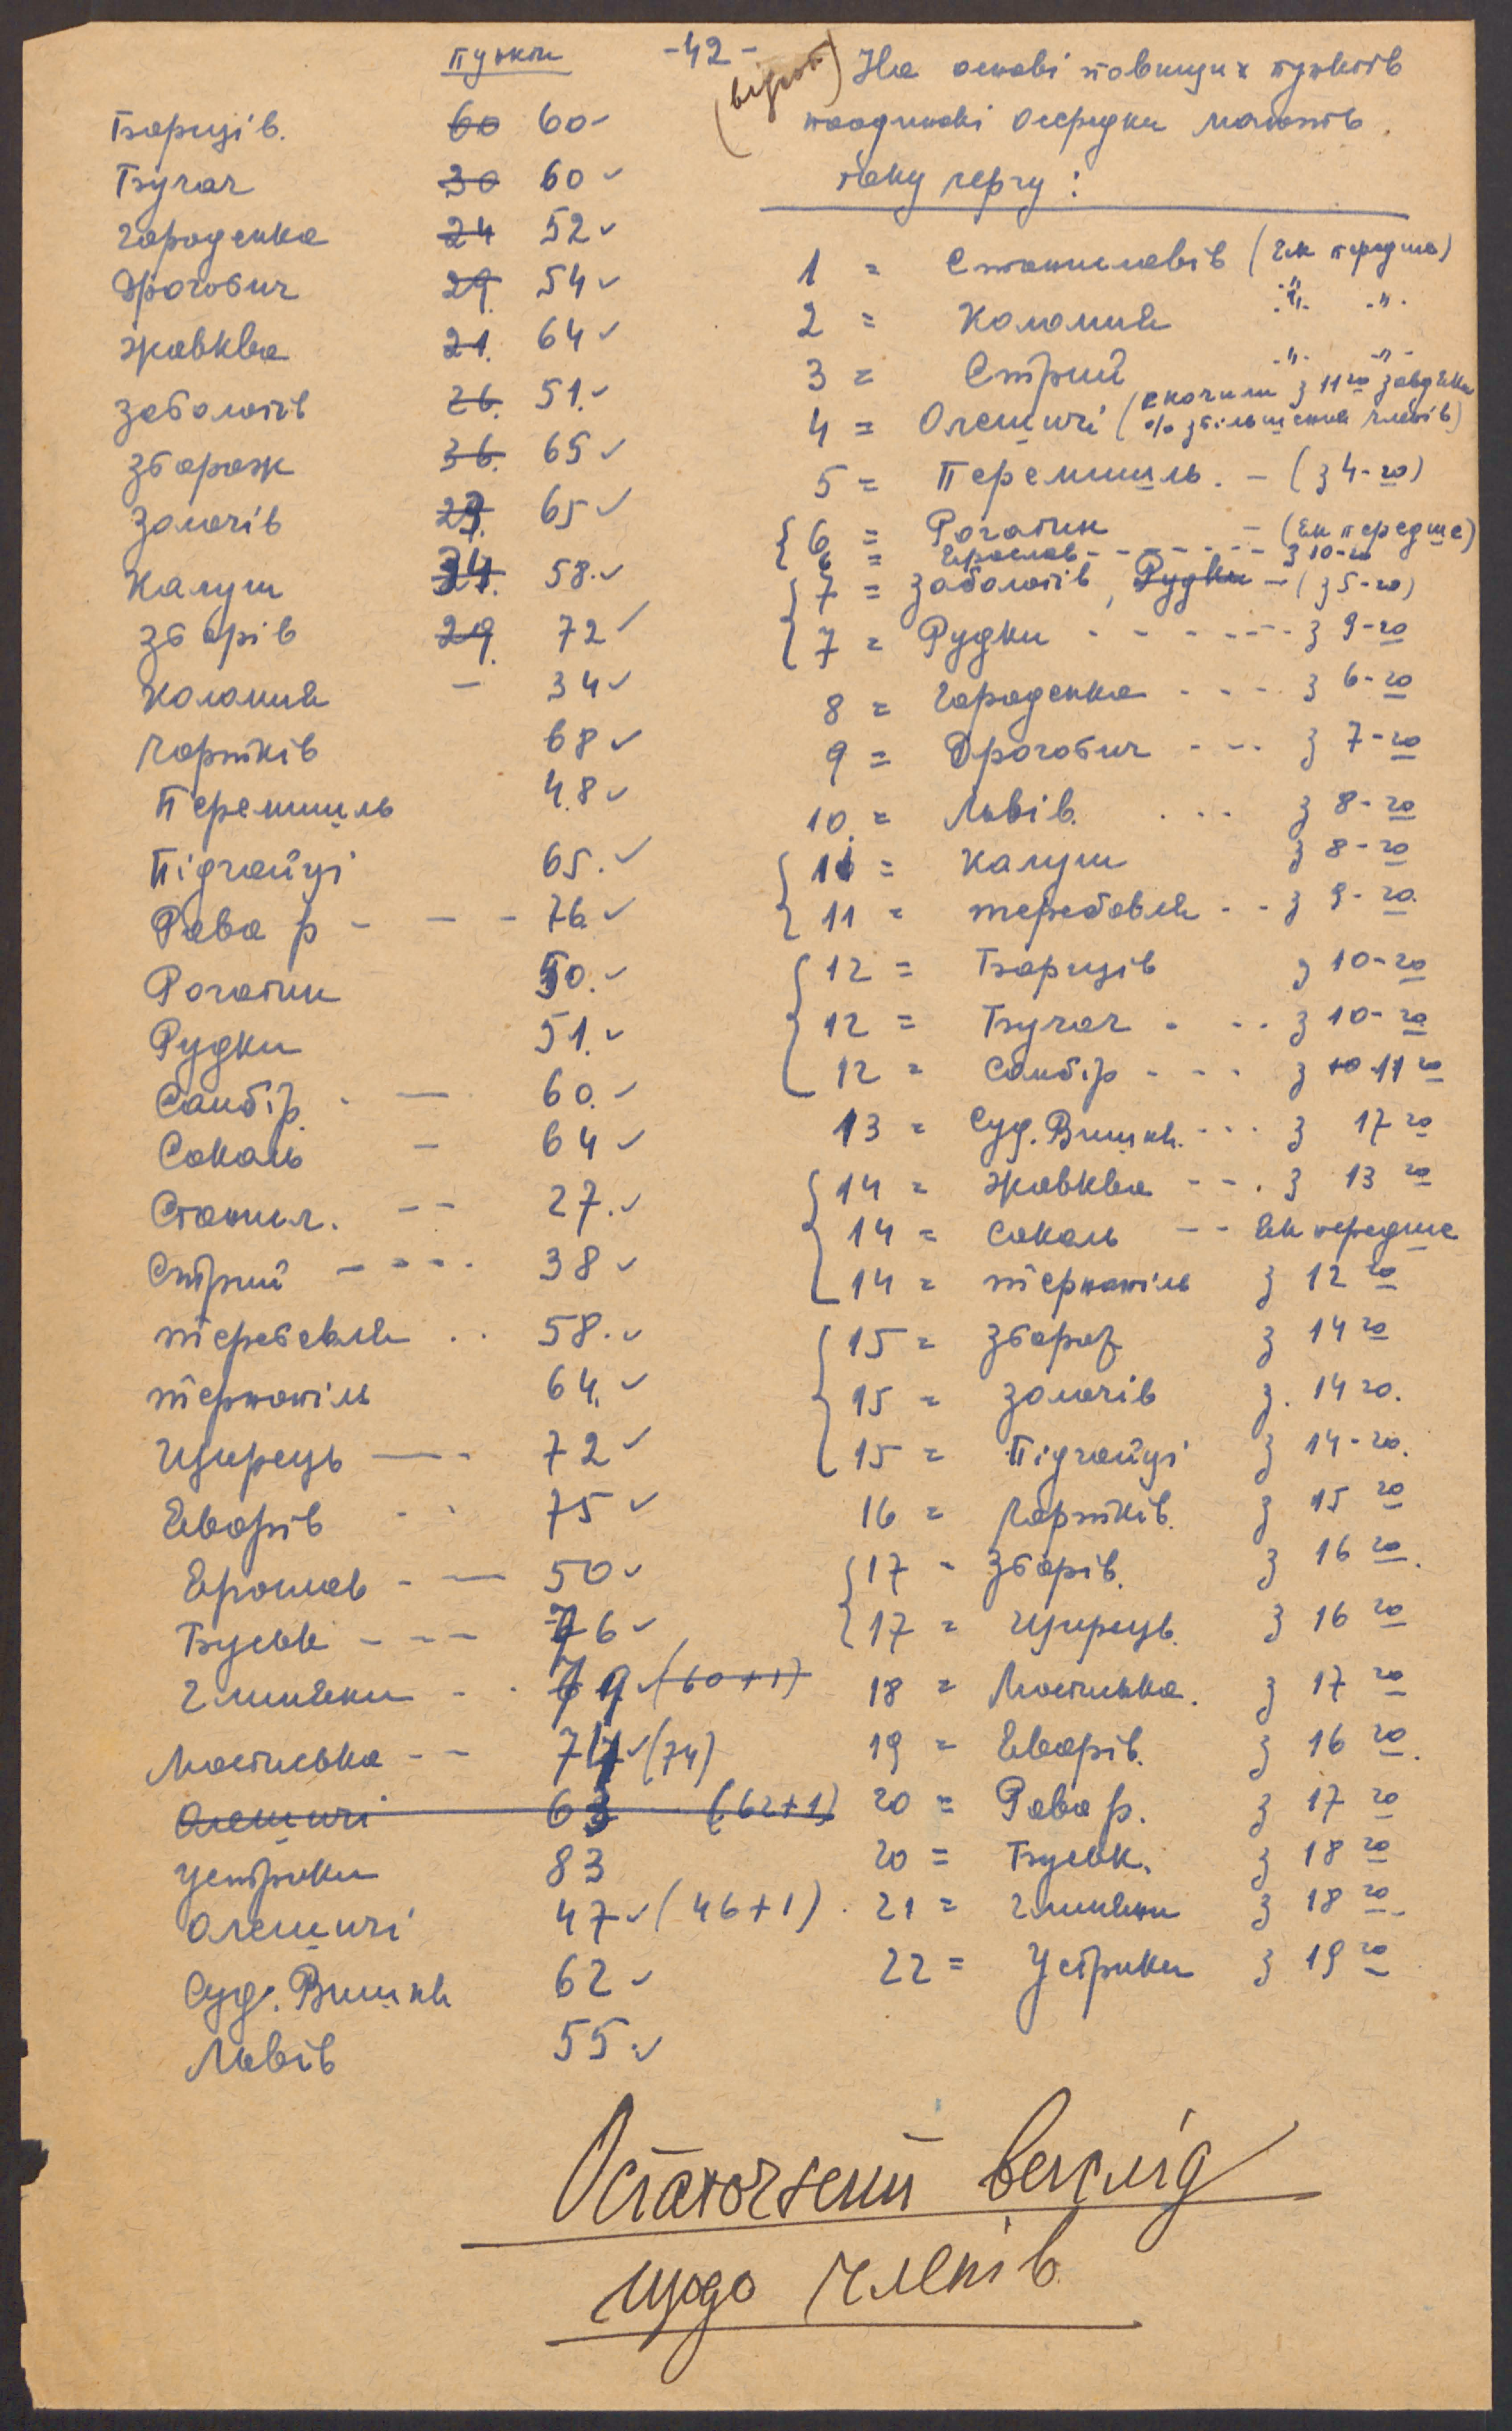 -42-
пункти
Борщів. 60 60
Бучач 30 60
Городенка 24 52
Дрогобич 29. 54
Жовква 21. 64
Заболотів 26. 51.
Збараж 36. 65
Золочів 65
Калуш 58.
Зборів 29. 72
Коломия – 34
Чортків 68
Перемишль 48
Підгайці 65.
Рава р - - - 76
Рогатин 50.
Рудки 51.
Самбір. - — 60.
Сокаль – 64
Станил. -- 27.
Стрий - - - - 38
Теребовля .. 58.
Тернопіль 64.
Щирець — - 72
Яворів - . 75
Ярослав - — 50
Буськ - - - 76
Глиняни - . 79 (60+1)
Мостиська -- 74 (74)
Олешичі 63 (62+1)
Устрики 83
Олешичі 47 (46+1)
Суд. Вишня 62
Львів 55.
На основі повищих пунктів
поодинокі осередки мають
таку чергу:
1 = Станиславів (як передше)
2 = Коломия -"- -"-
3 = Стрий -"- -"-
4 = Олешичі (скочили з 11го завдяки
% збільшення членів)
5 = Перемишль. - (з 4-го)
6 = Рогатин - (як передше)
6 = Ярослав - - - - - - з 10-го
7 = Заболотів, Рудки - (з 5-го)
7 = Рудки - - - - - - з 9-го
8 = Городенка - - - - з 6-го
9 = Дрогобич - - - з 7-го
10. = Львів. . . . з 8-го
11 = Калуш з 8-го
11 = Теребовля - - з 9-го.
12 = Борщів з 10-го
12 = Бучач - - - з 10-го
12 = Самбір - - - з 10 11го
13 = Суд. Вишня. - - - з 17го
14 = Жовква - - . з 13го
14 = Сокаль -- як передше
14 = Тернопіль з 12го
15 = Збараж з 14го
15 = Золочів з. 14го.
15 = Підгайці з 14-го.
16 = Чортків. з 15го
17 - Зборів. з 16го.
17 = Щирець. з 16го
18 = Мостиська. з 17го
19 = Яворів. з 16го.
20 = Рава р. з 17го
20 = Буськ. з 18го
21 = Глиняни з 18го.
22 = Устрики з 19го
Остаточний вигляд
щодо членів